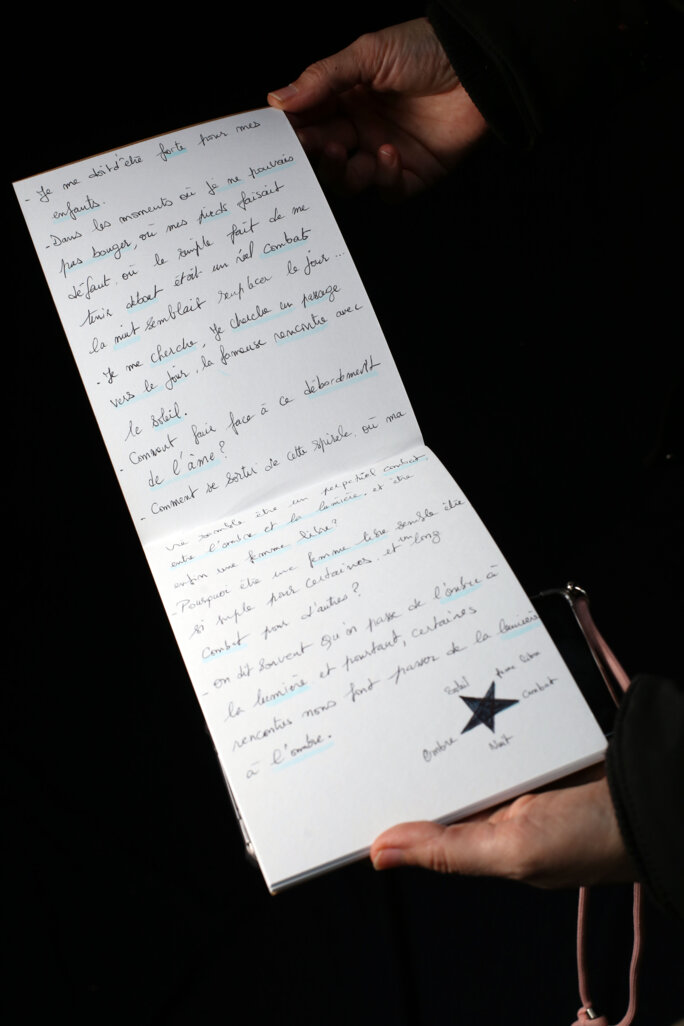 - Je me doit d'être forte pour mes
enfants.
- Dans les moments où je ne pouvais
pas bouger, où mes pieds faisait
défaut, où le simple fait de me
tenir debout était un réel combat,
la nuit semblait remplacer le jour...
- Je me cherche, je cherche un passage
vers le jour, la fameuse rencontre avec
le soleil.
- Comment faire face à ce débordement
de l'âme ?
- Comment se sortir de cette spirale, où ma
vie semble être un perpétuel combat,
entre l'ombre et la lumière, et être
enfin une femme libre ?
- Pourquoi être une femme libre semble être
si simple pour certaines, et un long
combat pour d'autres ?
- On dit souvent qu'on passe de l'ombre à
la lumière et pourtant, certaines
rencontres nous font passer de la lumière
à l'ombre.
Soleil
femme libre
Combat
Nuit
Ombre